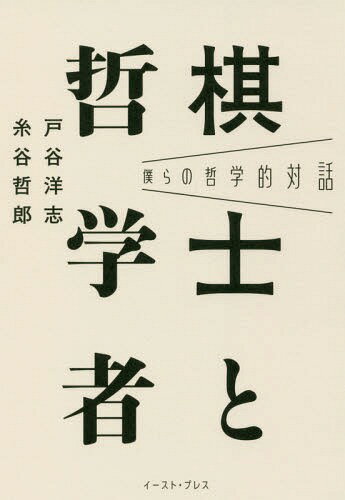 棋士と
哲学者
僕らの哲学的対話
戸谷洋志
糸谷哲郎
イースト・プレス